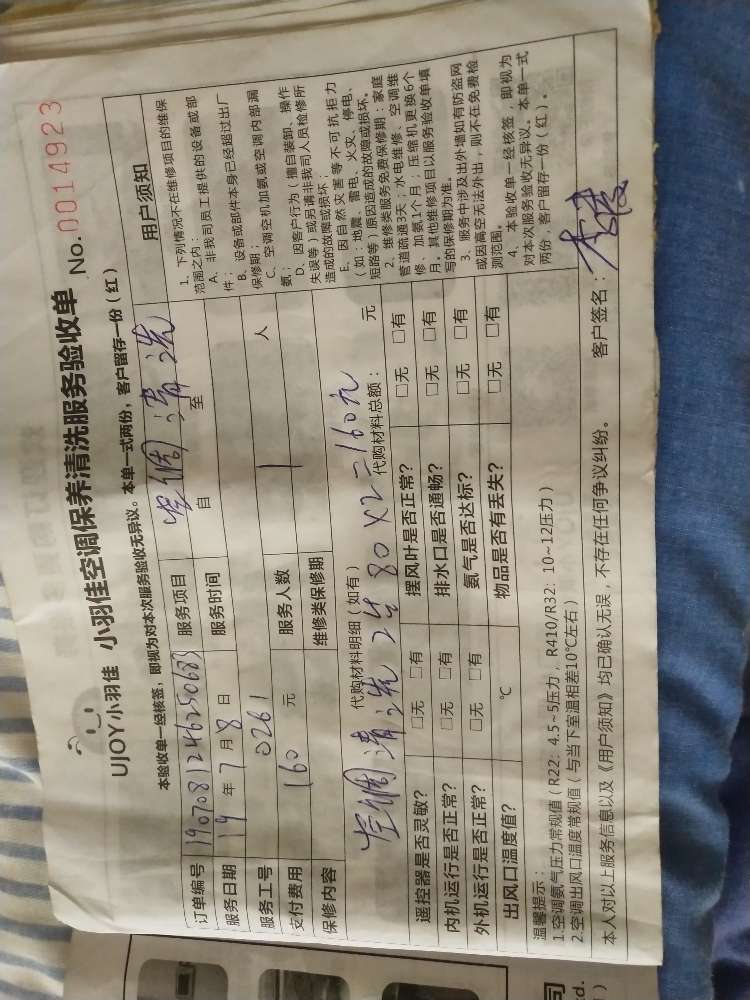 UJOY小羽佳 小羽佳空调保养清洗服务验收单 No.0014923
本验收单一经核签，即视为对本次服务验收无异议。本单一式两份，客户留存一份（红）
订单编号 190708124625068 服务项目 空调清洗
服务日期 19 年 7 月 8 日 服务时间 自 至
服务工号 0261
支付费用 160 元 服务人数 1 人
保修内容 维修类保修期
代购材料明细（如有） 代购材料总额： 元
空调清洗2台 80X2=160元
遥控器是否灵敏？ □无 □有 摆风叶是否正常？ □无 □有
内机运行是否正常？ □无 □有 排水口是否通畅？ □无 □有
外机运行是否正常？ □无 □有 氨气是否达标？ □无 □有
出风口温度值？ ℃ 物品是否有丢失？ □无 □有
用户须知
1、下列情况不在维修项目的维保
范围之内：
A、非我司员工提供的设备或部
件；
B、设备或部件本身已经超过出厂
保修期；
C、空调空机加氨或空调内部漏
氨；
D、因客户行为（擅自装卸、操作
失误等）或另请非我司人员检修所
造成的故障或损坏；
E、因自然灾害等不可抗拒力
（如：地震、雷电、火灾、停电、
短路等）原因造成的故障或损坏。
2、维修类服务免费保修期：家庭
管道疏通3天；水电维修、空调维
修、加氨1个月；压缩机更换6个
月。其他维修项目以服务验收单填
写的保修期为准。
3、服务中涉及出外墙如有防盗网
或因高空无法外出，则不在免费检
测范围。
4、本验收单一经核签，即视为
对本次服务验收无异议。本单一式
两份，客户留存一份（红）。
温馨提示：
1.空调氨气压力常规值（R22：4.5~5压力，R410/R32：10~12压力）
2.空调出风口温度常规值（与当下室温相差10℃左右）
本人对以上服务信息以及《用户须知》均已确认无误，不存在任何争议纠纷。 客户签名：
司
td.
）